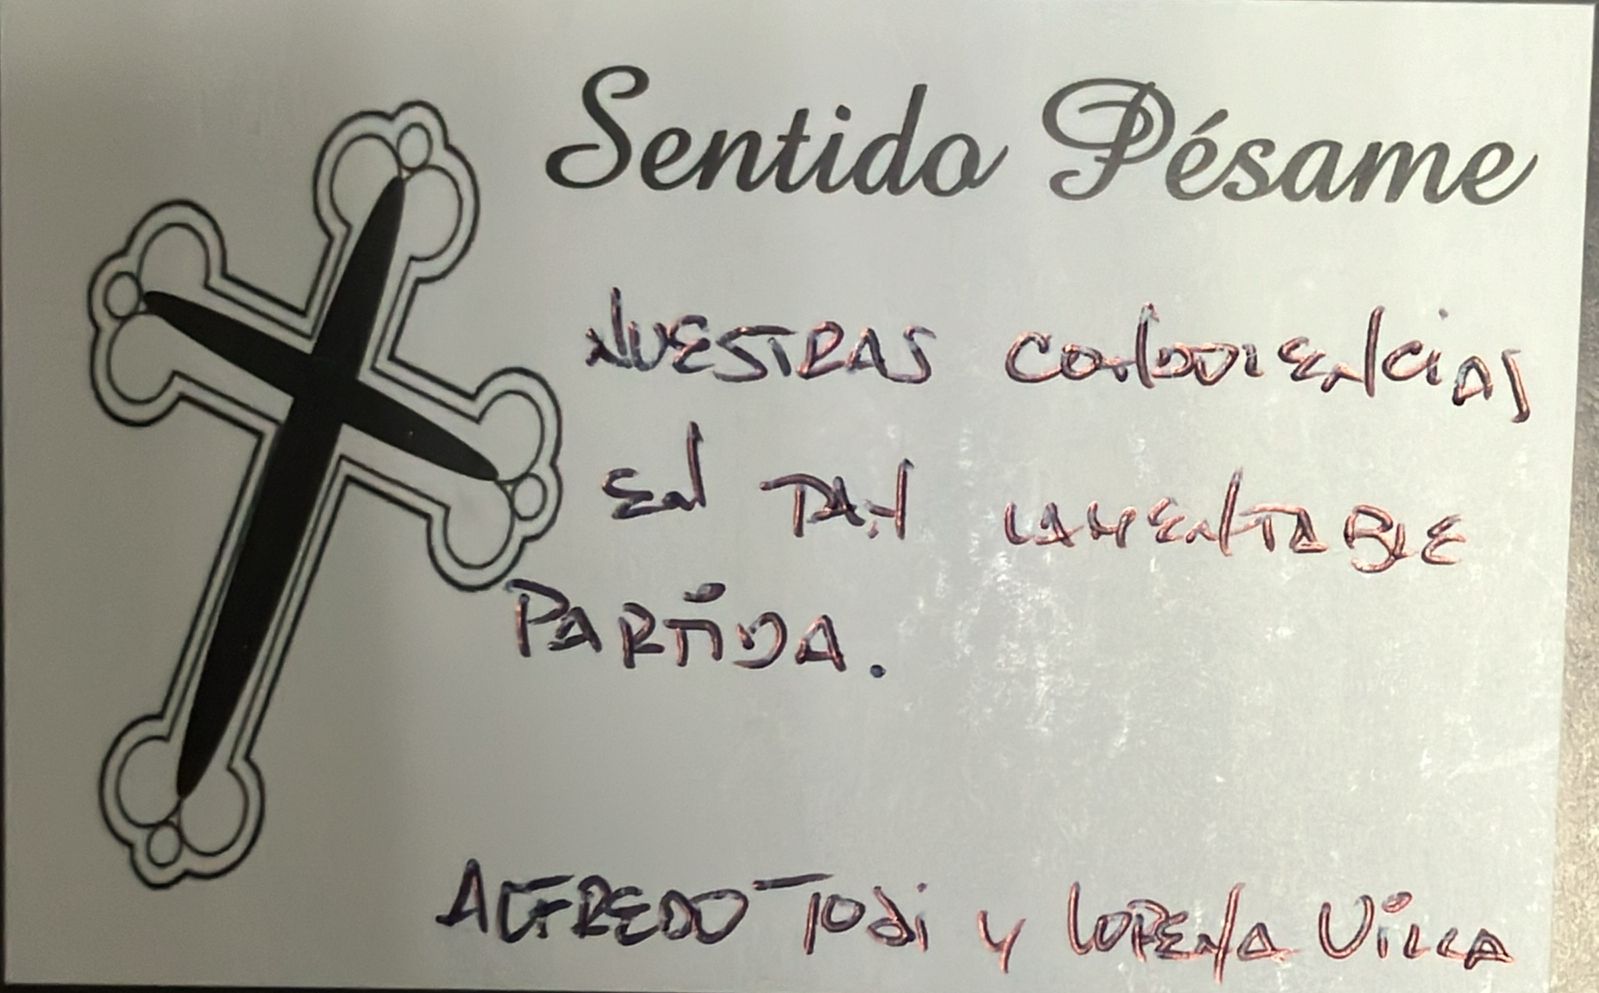 Sentido Pésame
NUESTRAS CONDOLENCIAS
EN TAN LAMENTABLE
PARTIDA.
ALFREDO TODI Y LORENA VILLA